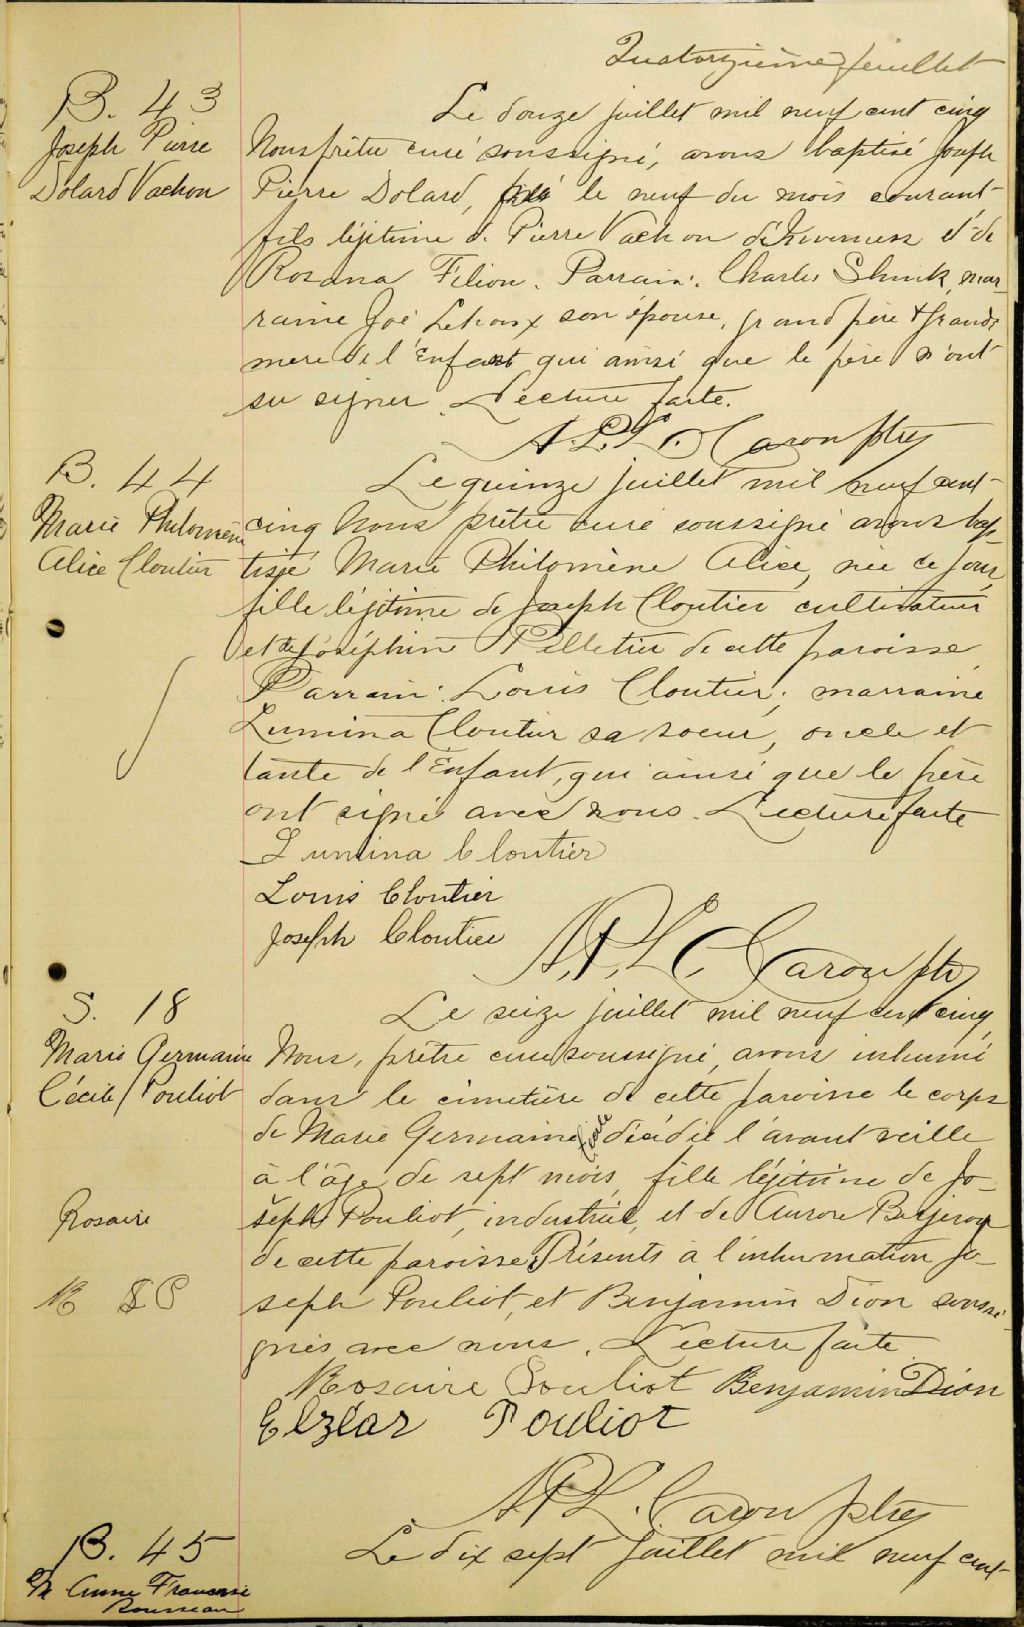 Quatorzième feuillet
B. 43
Joseph Pierre
Dolard Vachon
Le douze juillet mil neuf cent cinq
Nous prêtre curé soussigné, avons baptisé Joseph
Pierre Dolard, né le neuf du mois courant
fils légitime de Pierre Vachon d'Inverness et de
Rosana Filion. Parrain: Charles mar-
raine Joé son épouse, grand père & grand
mere de l'Enfant qui ainsi que le père n'ont
su signer. Lecture faite.
A.P.L. Caron ptre
B. 44
Marie Philomène
Alice Cloutier
Le quinze juillet mil neuf cent
cinq Nous prêtre curé soussigné avons bap-
tisé Marie Philomène Alice, née ce jour
fille légitime de Joseph Cloutier cultivateur
et de Joséphine Pelletier de cette paroisse
Parrain: Louis Cloutier, marraine
Lumina Cloutier sa soeur, oncle et
tante de l'Enfant, qui ainsi que le père
ont signé avec nous. Lecture faite
Lumina Cloutier
Louis Cloutier
Joseph Cloutier
A.P.L. Caron ptre
S. 18
Marie Germaine
Cécile Pouliot
Le seize juillet mil neuf cent cinq,
Nous, prêtre curé soussigné, avons inhumé
dans le cimetière de cette paroisse le corps
de Marie Germaine Cécile décédée l'avant veille
à l'âge de sept mois, fille légitime de Jo-
seph Pouliot, industriel, et de Aurore Bergeron
de cette paroisse. Présents à l'inhumation Jo-
seph Pouliot, et Benjamin Dion soussi-
gnés avec nous. Lecture faite
Rosaire
Rosaire Pouliot Benjamin Dion
Elzéar Pouliot
A.P.L. Caron ptre
B. 45
M. Anne Francoise
Rousseau
Le dix sept juillet mil neuf cent